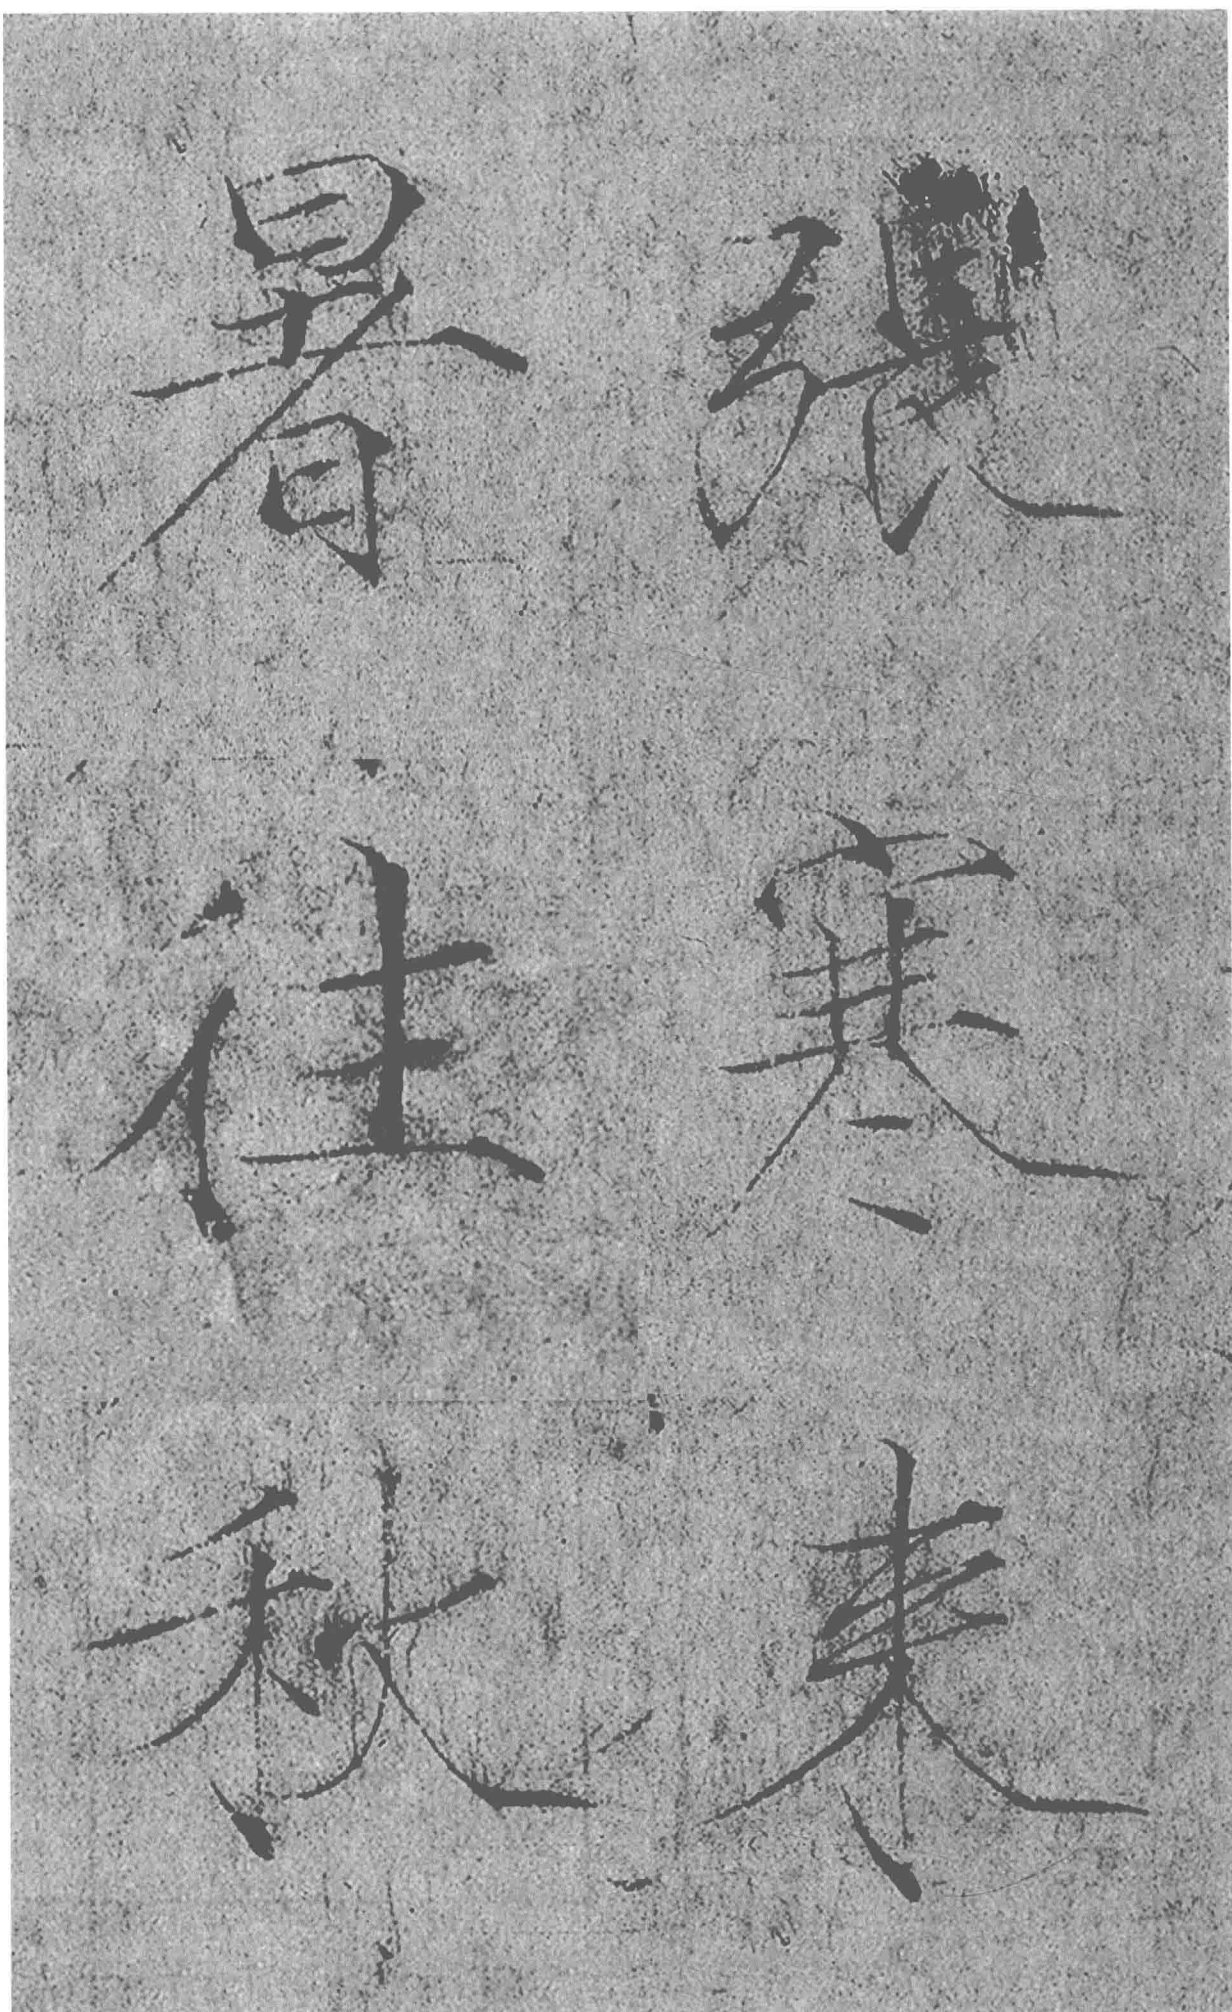 張寒来
暑往秋